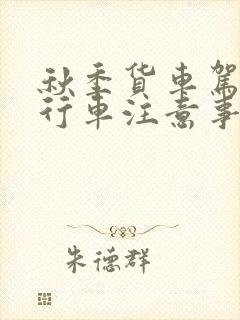 秋季货车驾
行车注意事
朱德群